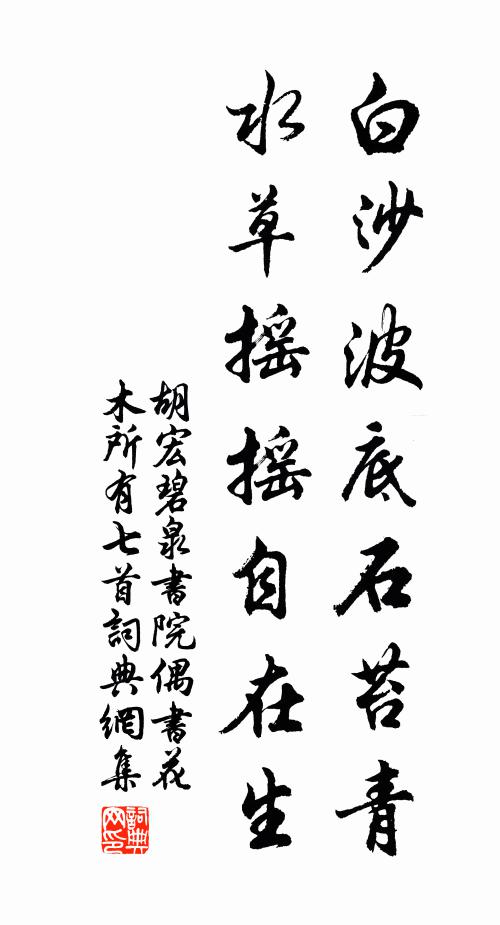 白沙波底石苔青
水草摇摇自在生
胡宏碧泉書院偶書花
木所有七首詞典網集
詞典
网印